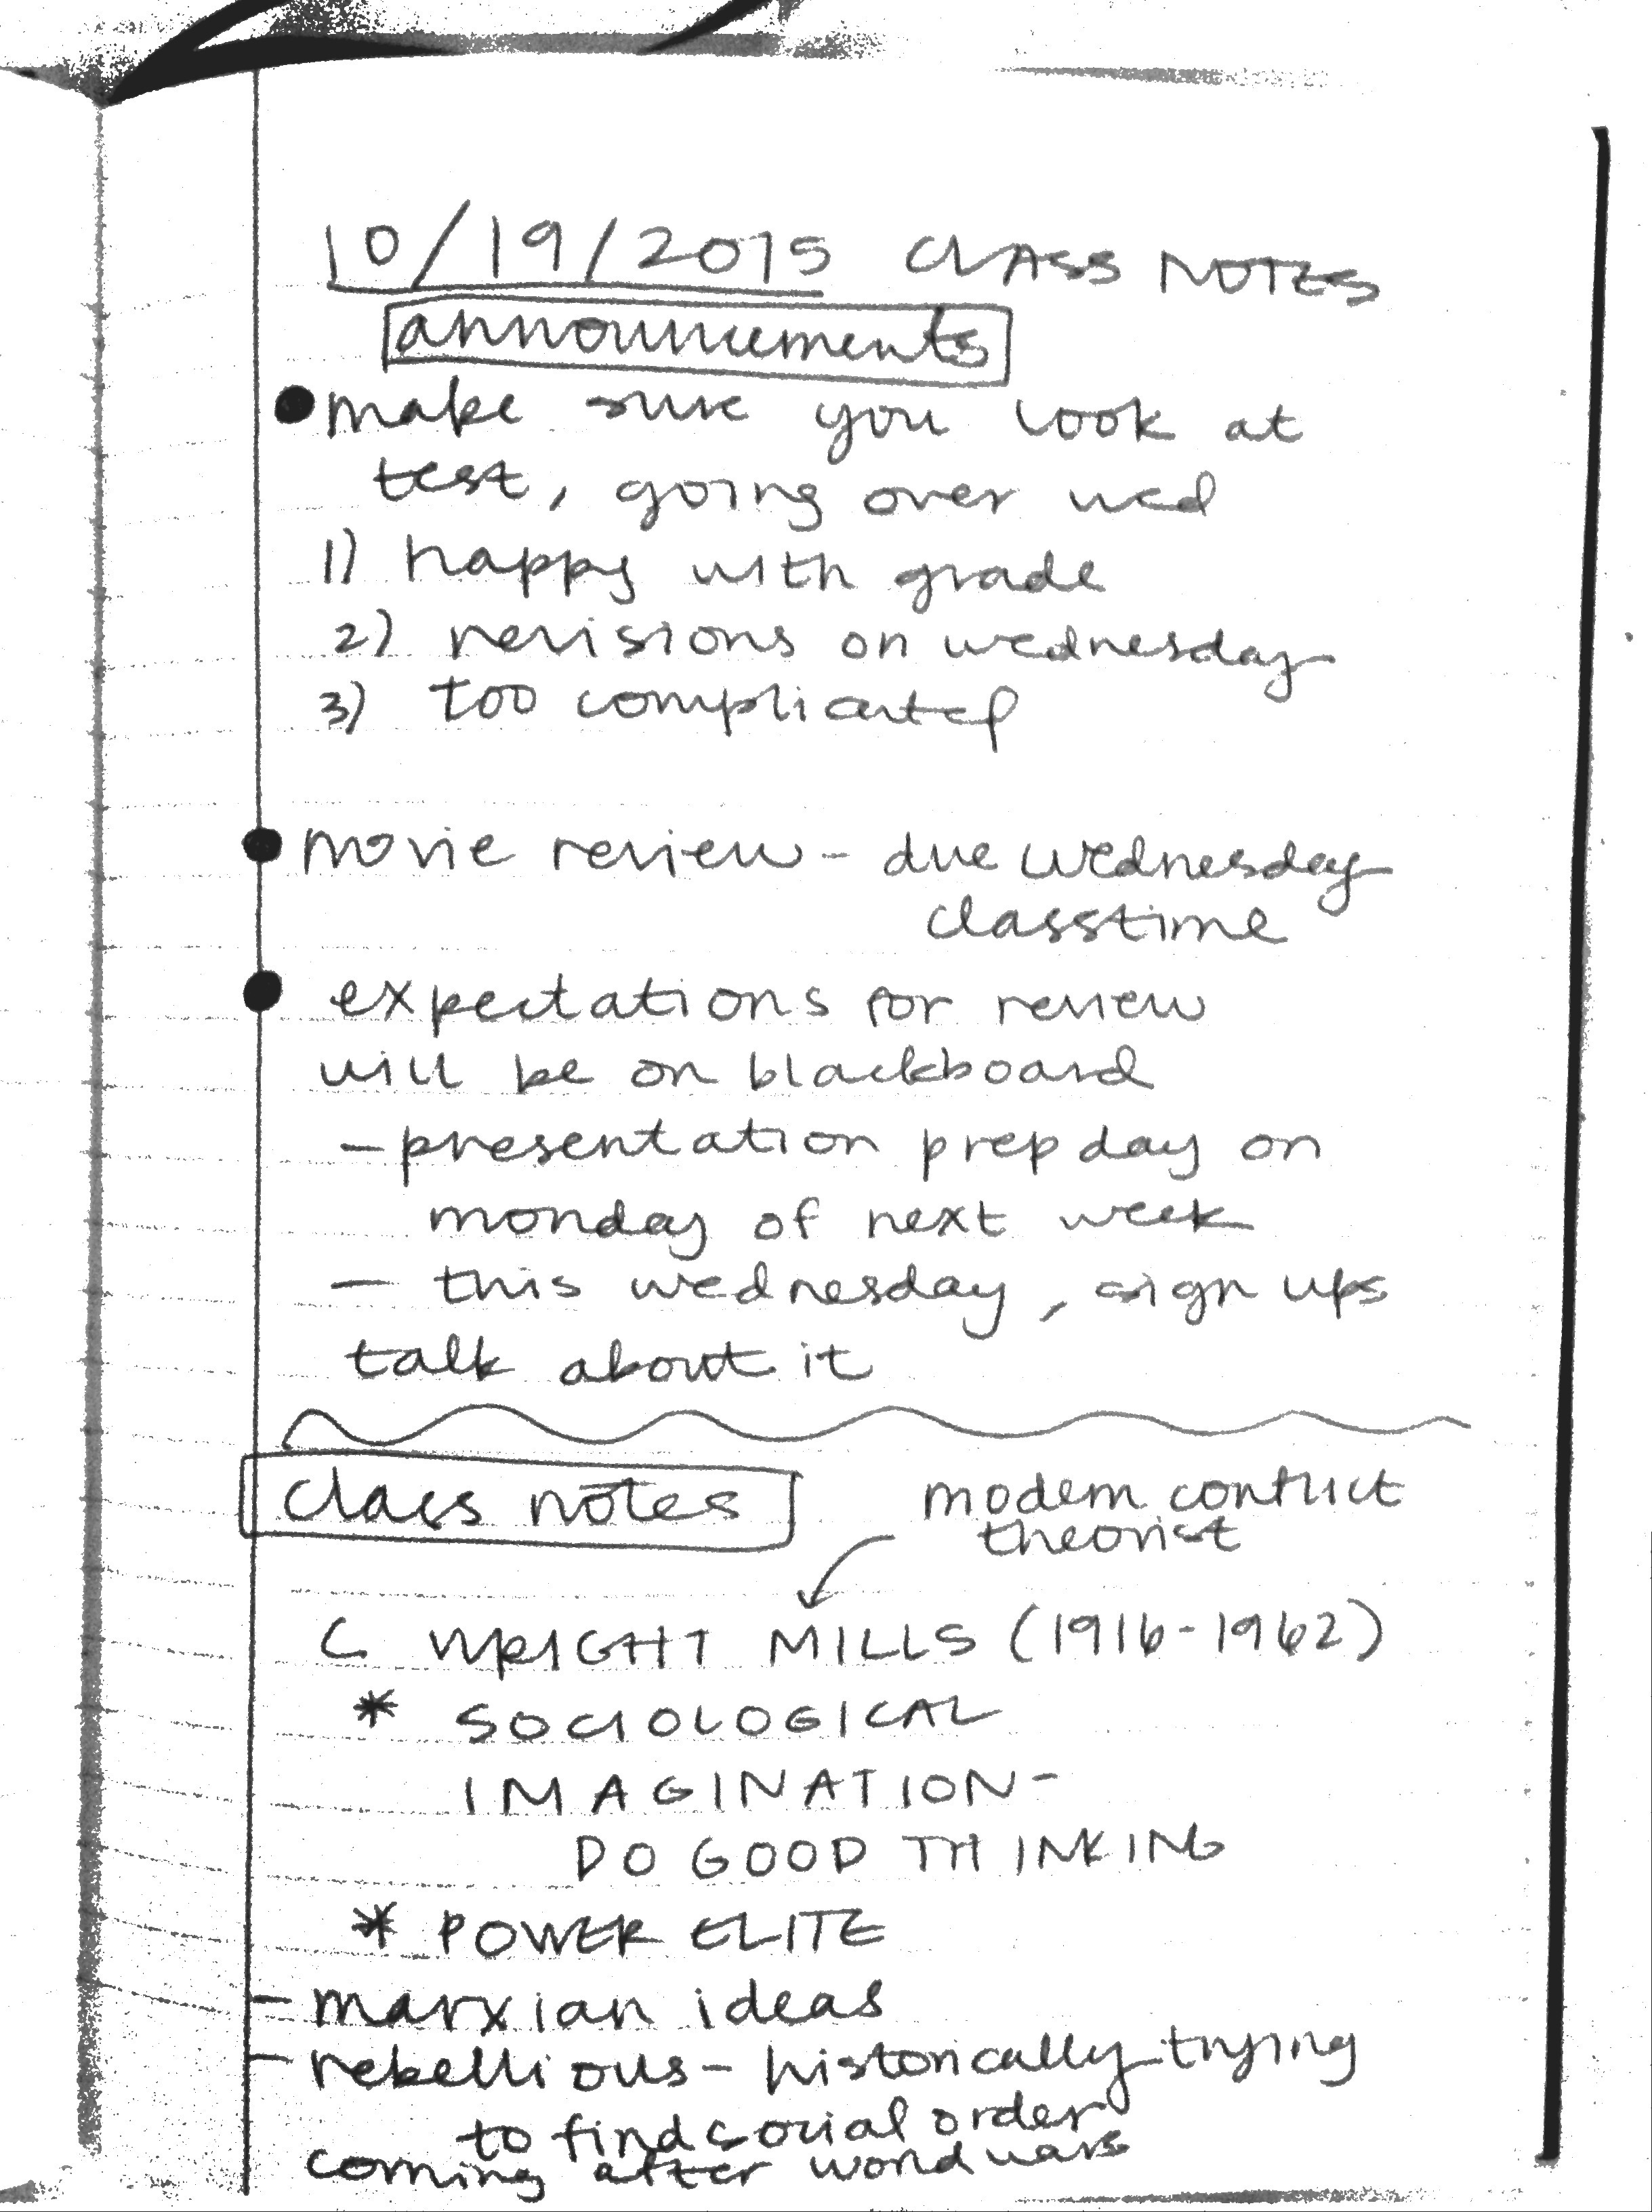 10/19/2015 CLASS NOTES
announcements
● make sure you look at
test, going over wed
1) happy with grade
2) revisions on wednesday
3) too complicated
● movie review - due wednesday
classtime
● expectations for review
will be on blackboard
- presentation prep day on
monday of next week
- this wednesday, sign ups
talk about it
class notes
modern conflict
theorist
C WRIGHT MILLS (1916-1962)
* SOCIOLOGICAL
IMAGINATION-
DO GOOD THINKING
* POWER ELITE
- marxian ideas
- rebellious - historically trying
to find social order
coming after world wars